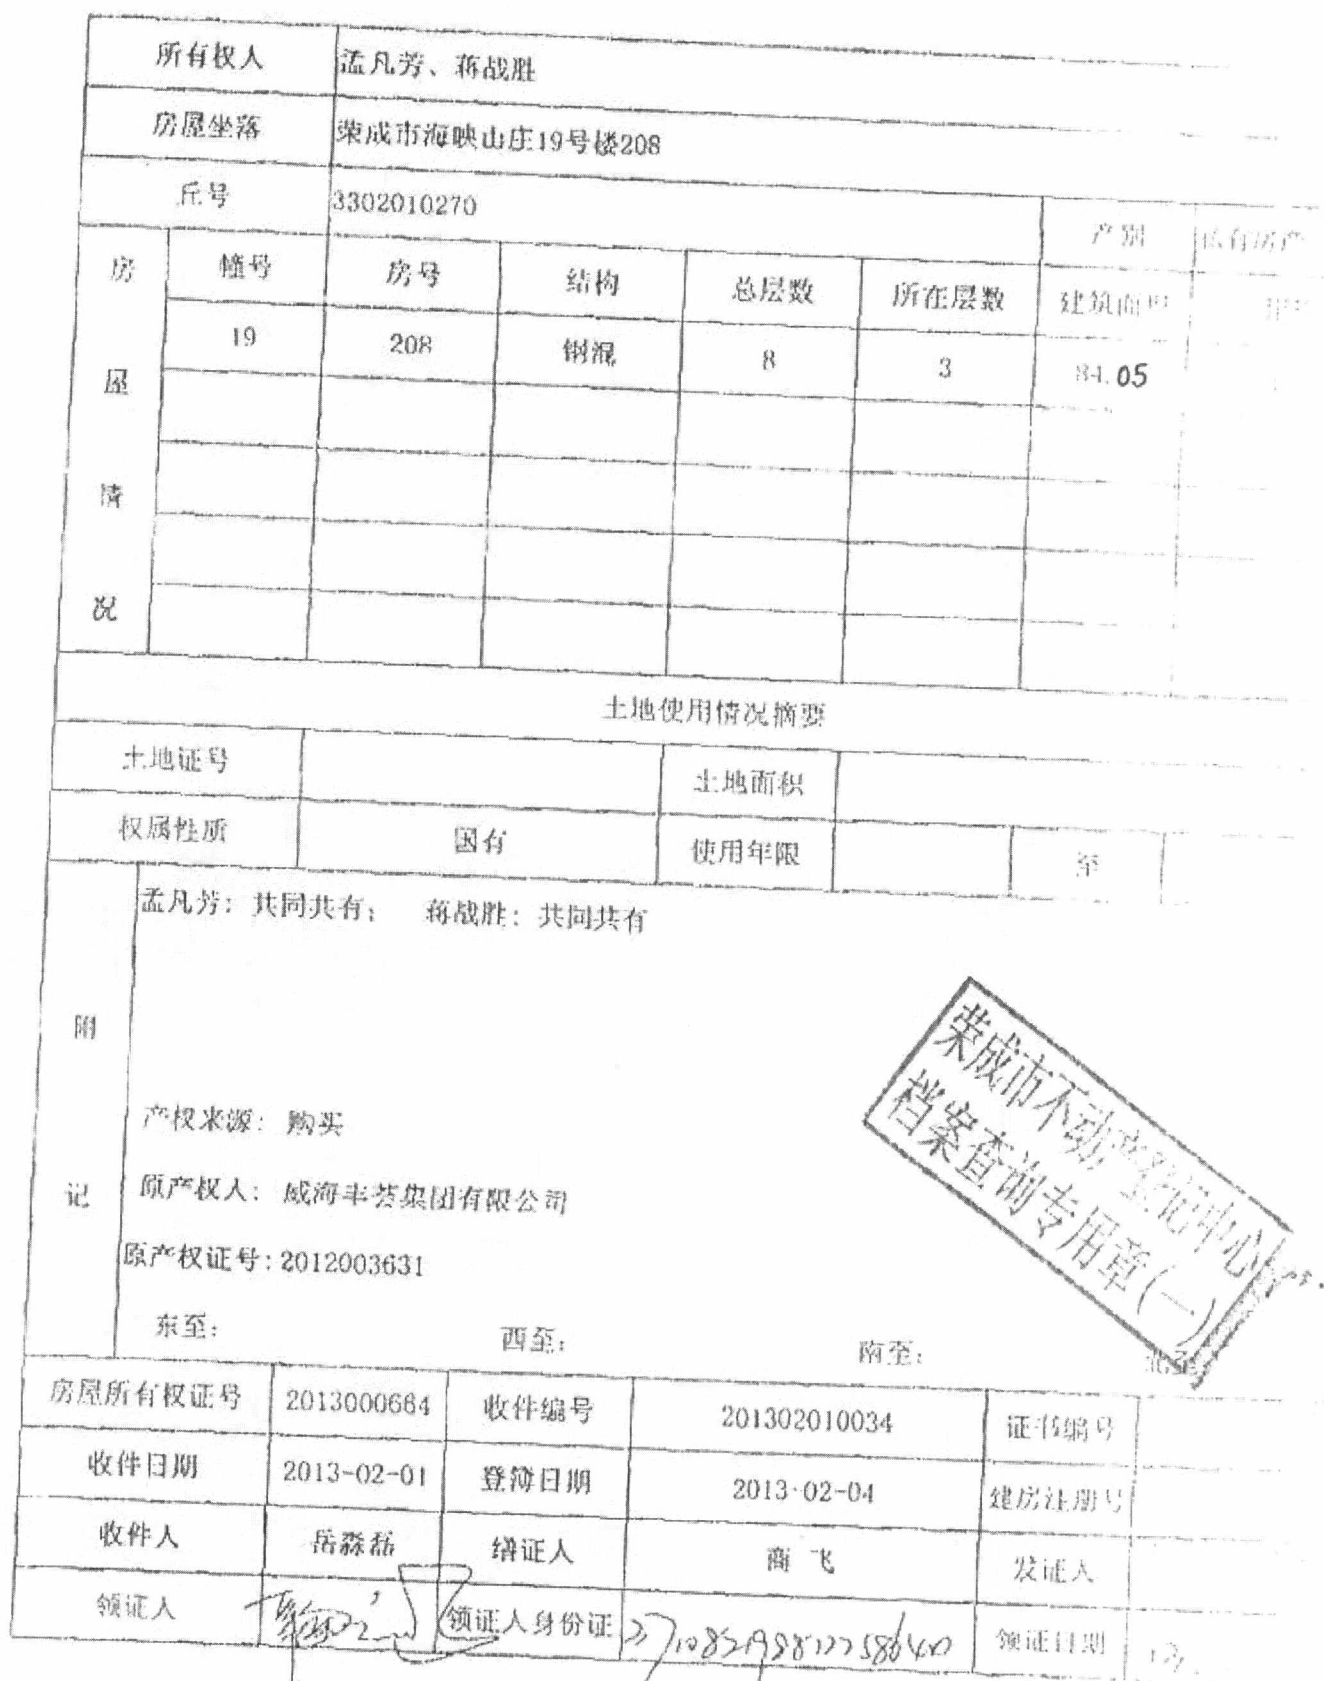 所有权人 孟凡芳、蒋战胜
房屋坐落 荣成市海映山庄19号楼208
丘号 3302010270 产别 私有房产
房屋情况 幢号 房号 结构 总层数 所在层数 建筑面积
19 208 钢混 8 3 84.05
土地使用情况摘要
土地证号 土地面积
权属性质 国有 使用年限 至
附记
孟凡芳：共同共有； 蒋战胜：共同共有
产权来源：购买
原产权人：威海丰荟集团有限公司
原产权证号：2012003631
荣成市不动产登记中心
档案查询专用章(一)
东至： 西至： 南至： 北至
房屋所有权证号 2013000684 收件编号 201302010034 证书编号
收件日期 2013-02-01 登簿日期 2013-02-04 建房注册号
收件人 岳淼磊 缮证人 商飞 发证人
领证人 领证人身份证 领证日期